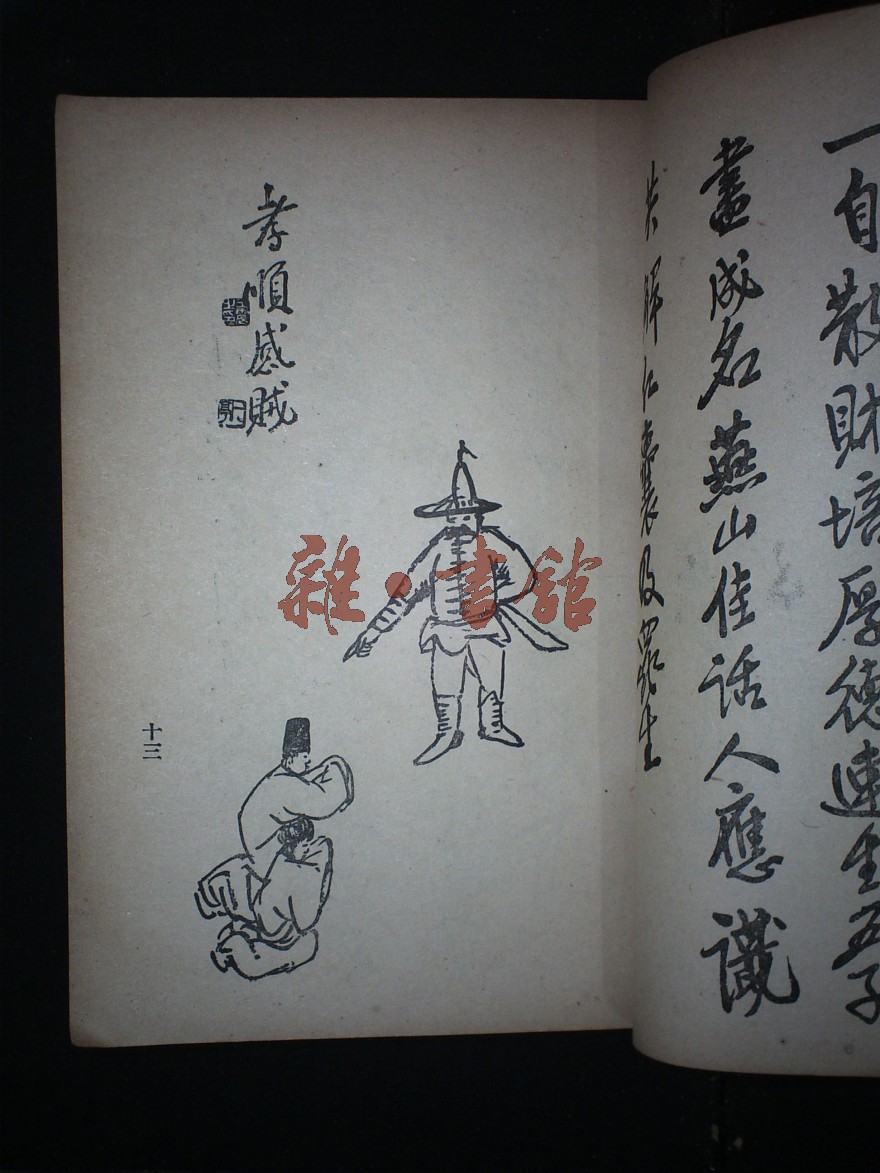 一自散財培厚德連生五子
畫成名燕山佳話人應識
孝順感賊
十三
雜·書館